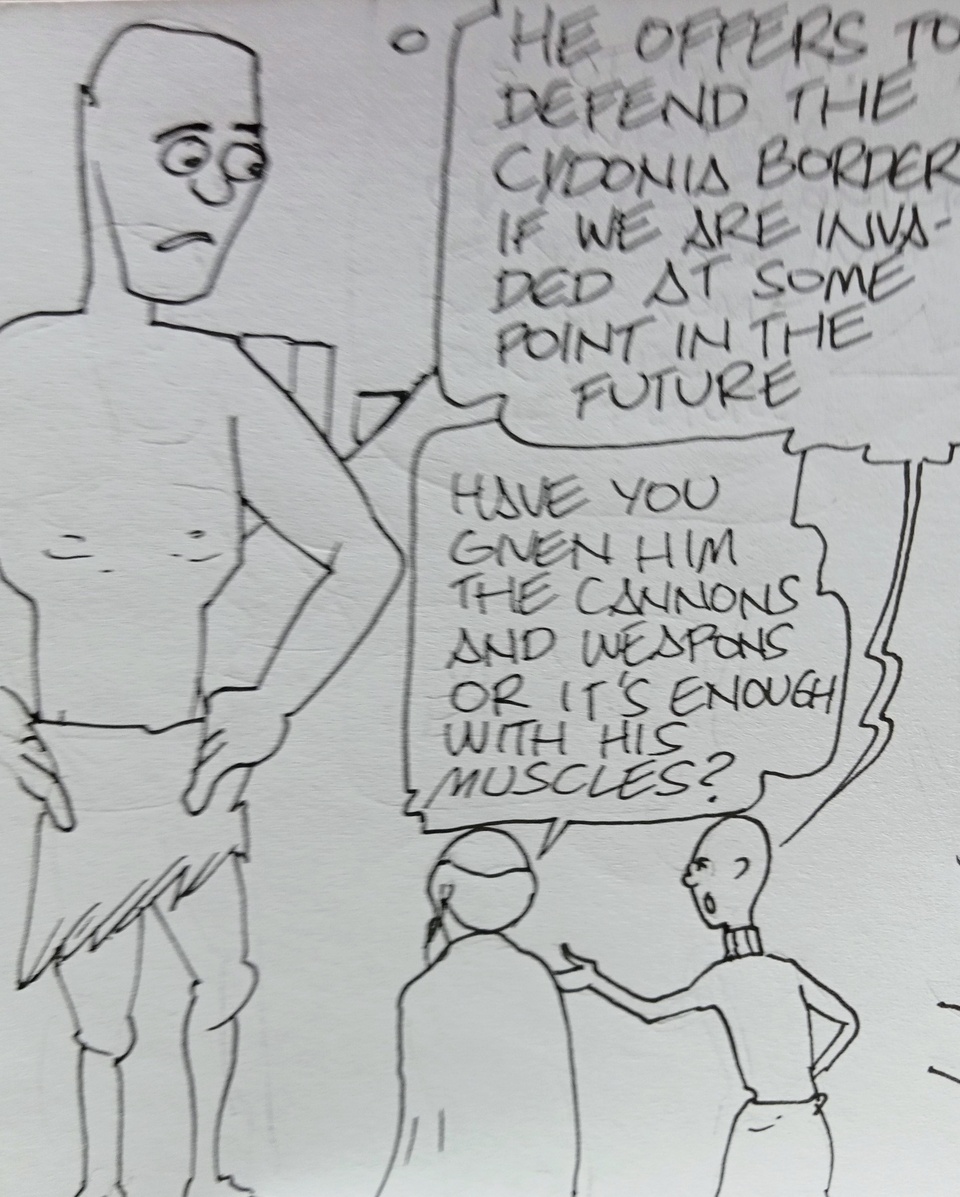 HE OFFERS TO
DEFEND THE
CYDONIA BORDER
IF WE ARE INVA-
DED AT SOME
POINT IN THE
FUTURE
HAVE YOU
GIVEN HIM
THE CANNONS
AND WEAPONS
OR IT'S ENOUGH
WITH HIS
MUSCLES?